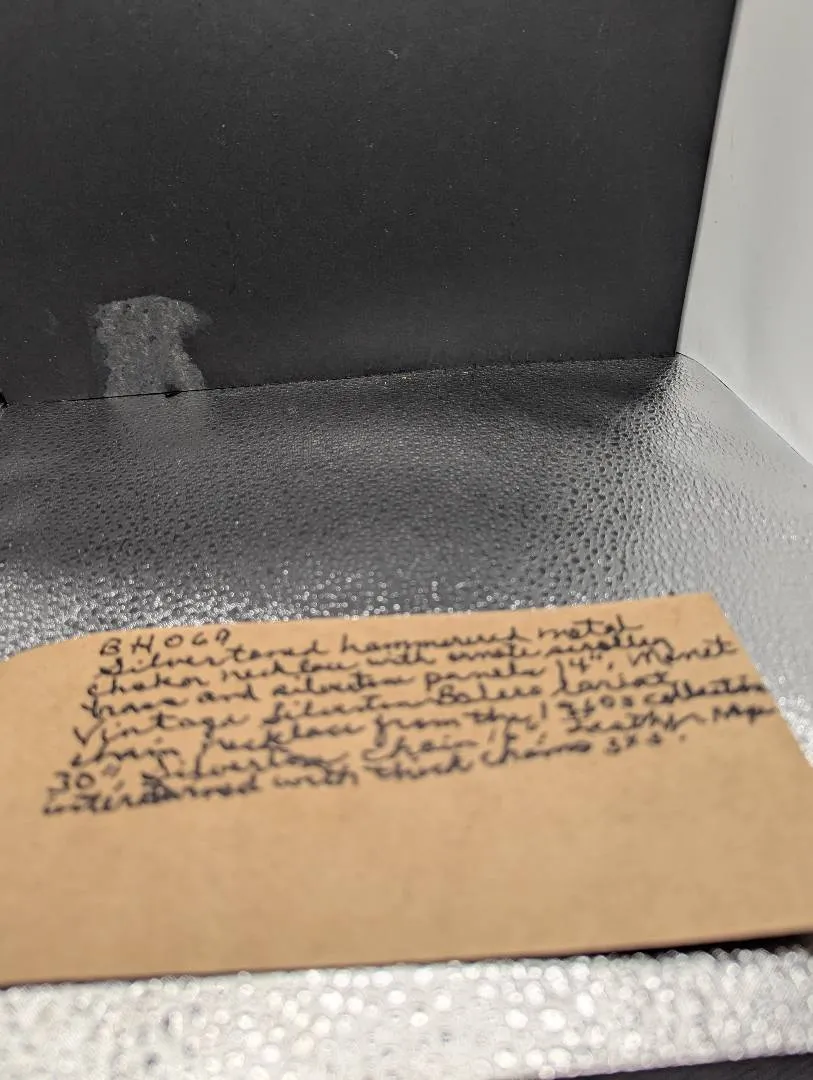 BH069
Silvertoned hammered metal
choker necklace with ornate scrolley
brass and silvertone panels 14", Monet
Vintage Silvertone Bolero lariat
chain necklace from the 1960s collection
30", Silvertone chain Leather
intertwined with thick chains